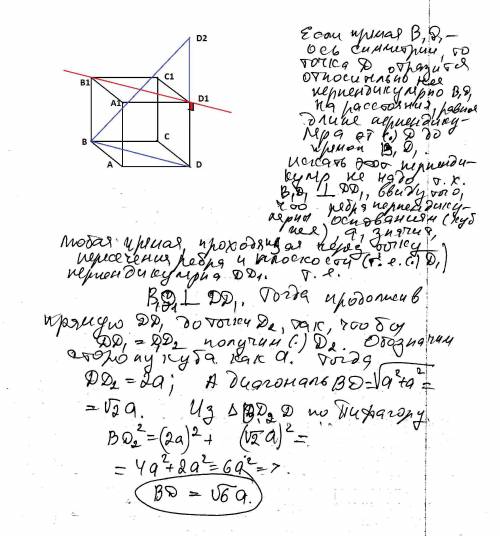 D2
B1
C1
A1
D1
B
C
A
D
Если прямая B₁D₁ –
ось симметрии, то
точка D отразится
относительно нее
перпендикулярно B₁D₁
на расстояния, равная
длине перпендику-
ляра от (.) D до
прямой B₁D₁
искать этот перпенди-
куляр не надо т.к.
B₁D₁ ⊥ DD₁, ввиду того,
что ребра перпендику-
лярны основаниям (куб
а, значит,
любая прямая, проходящая через точку
пересечения ребра и плоскости (т.е. (.) D₁)
перпендикулярна DD₁. т.е.
B₁D₁ ⊥ DD₁. Тогда продолжив
прямую DD₁ до точки D₂, так, чтобы
DD₁ = D₁D₂ получим (.) D₂. Обозначим
сторону куба как a. Тогда
DD₂ = 2a; А диагональ BD = √a² + a² =
= √2 a. Из Δ BD₂D по Пифагору
BD₂² = (2a)² + (√2 a)² =
= 4a² + 2a² = 6a² =>
BD = √6 a.